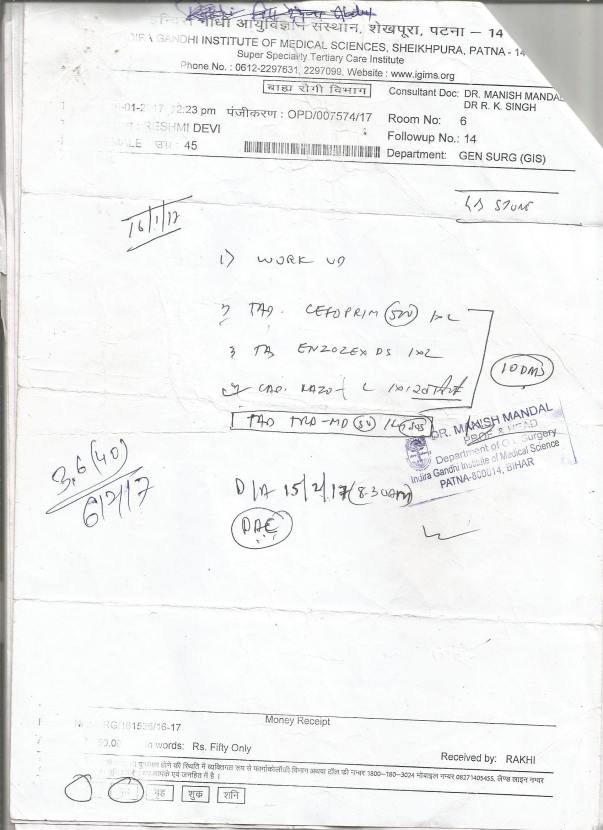 गाँधी आयुर्विज्ञान संस्थान, शेखपुरा, पटना – 14
GANDHI INSTITUTE OF MEDICAL SCIENCES, SHEIKHPURA, PATNA - 14
Super Speciality Tertiary Care Institute
Phone No. : 0612-2297631, 2297099, Website : www.igims.org
बाह्य रोगी विभाग
Consultant Doc: DR. MANISH MANDAL
DR R. K. SINGH
-01-2017 12:23 pm पंजीकरण : OPD/007574/17
Room No: 6
RESHMI DEVI
Followup No.: 14
MALE उम्र : 45
Department: GEN SURG (GIS)
GB STONE
16/1/17
1) WORK UP
TAB. CEFOPRIM 500 1x2
TAB ENZOZEX DS 1x2
CAP. RAZO-L 1x1
10 DAYS
TAB TRD-MD 50
DR. MANISH MANDAL
PROF & HEAD
Department of G.I. Surgery
Indira Gandhi Institute of Medical Science
PATNA-800014, BIHAR
3,6 (40)
6/2/17
D/A 15/2/17 (8.30AM)
PAC
Money Receipt
RG/161536/16-17
50.00 in words: Rs. Fifty Only
Received by: RAKHI
होने की स्थिति में व्यक्तिगत रूप से फार्माकोलॉजी विभाग अथवा टॉल फ्री नम्बर 1800-180-3024 मोबाइल नम्बर 08271405455, लैण्ड लाइन नम्बर
आपके एवं जनहित में है ।
बुध गुरु शुक्र शनि